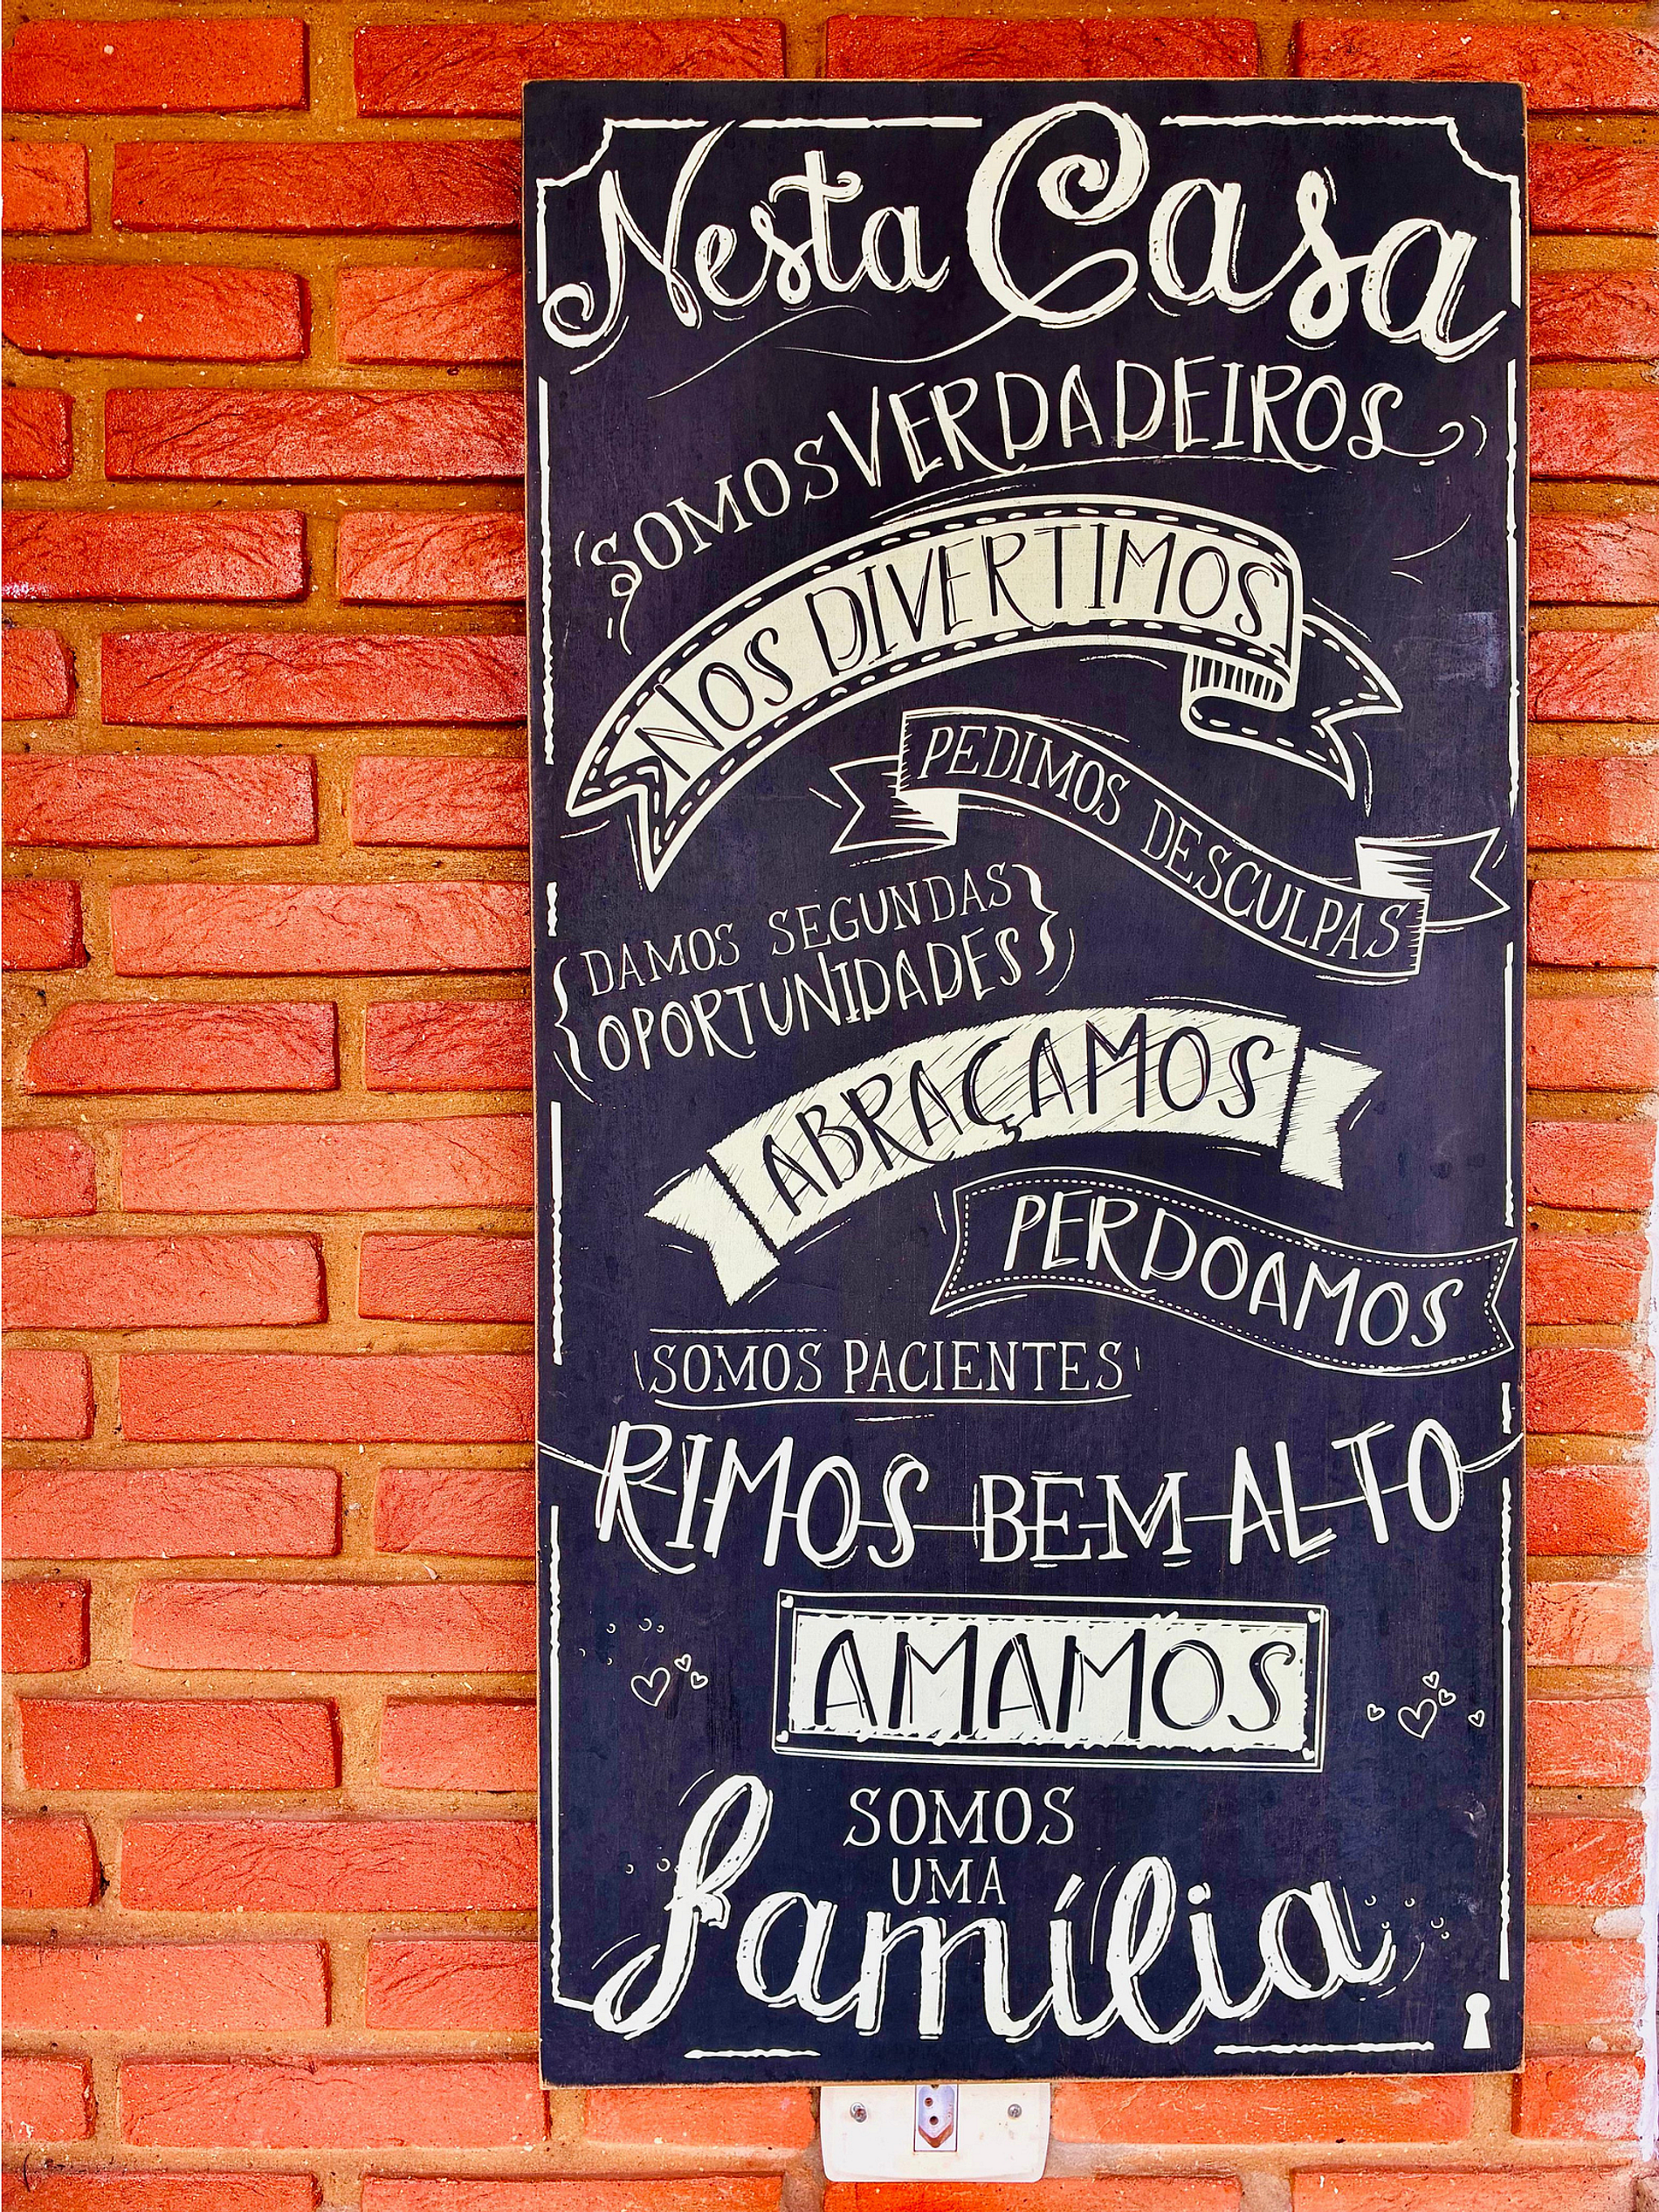 Nesta Casa
SOMOS VERDADEIROS
NOS DIVERTIMOS
PEDIMOS DESCULPAS
DAMOS SEGUNDAS
OPORTUNIDADES
ABRAÇAMOS
PERDOAMOS
SOMOS PACIENTES
RIMOS BEM ALTO
AMAMOS
SOMOS
UMA
família